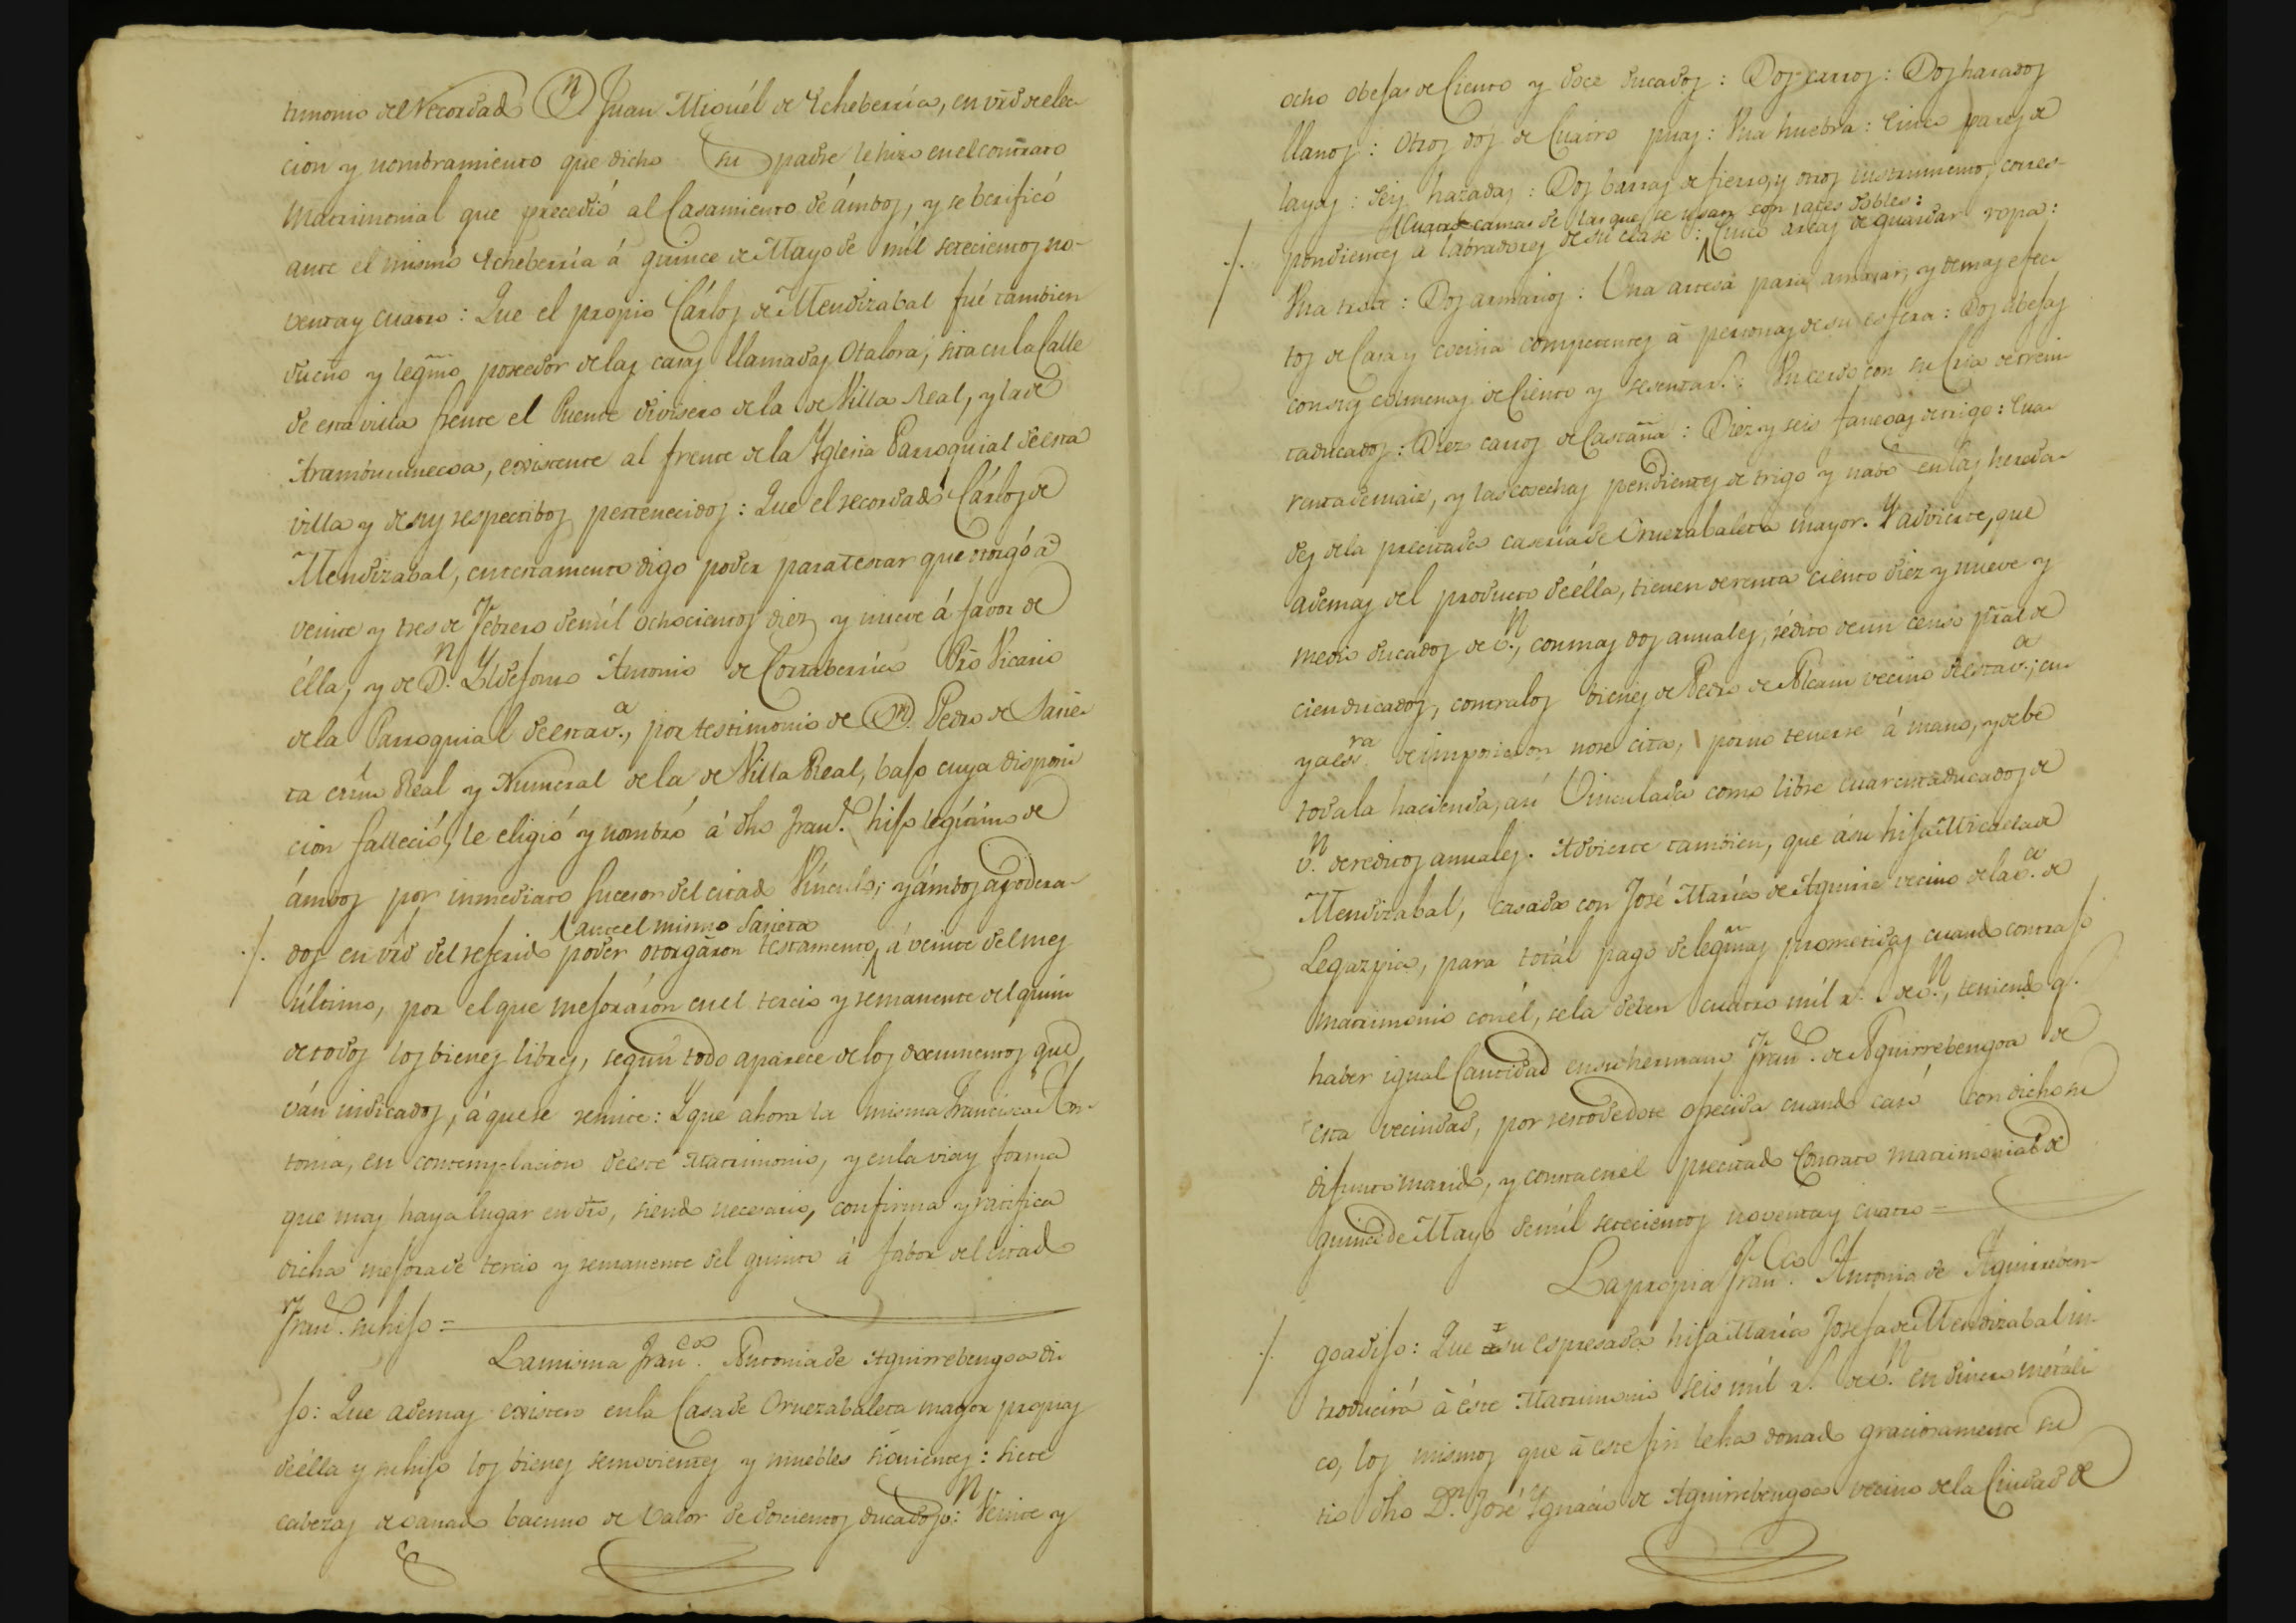 timonio del recordado Dn Juan Miguél de Echeberría, en vrd de elec-
cion y nombramiento que dicho su padre le hizo en el contrato
Matrimonial que precedió al Casamiento de ámbos, y se berificó
ante el mismo Echeberría á quince de Mayo de mil setecientos no-
venta y cuatro: Que el propio Cárlos de Mendizabal fué tambien
dueño y legmo poseedor de las casas llamadas Otalora, sita en la Calle
de esta villa frente el Puente divisero de la de Villa Real, y la de
existente al frente de la Yglesia Parroquial de esta
villa y de sus respectibos pertenecidos: Que el recordado Cárlos de
Mendizabal, en testamento digo poder para testar que otorgó á
veinte y tres de Febrero de mil ochocientos diez y nueve á favor de
élla, y de Dn. Yldefonso Antonio de Vicario
de la Parroquial de esta va., por testimonio de Dn Pedro de Sarie-
ta esno Real y Numeral de la de Villa Real, bajo cuya disposi-
cion falleció, le eligió y nombró á dho Frando. hijo legítimo de
ámbos por inmediato sucesor del citado Vínculo; y ámbos apodera-
ante el mismo Sarieta
./. dos en vrd del referido poder otorgáron testamento, á veinte del mes
último, por el que mejoráron en el tercio y remanente del quin-
de todos los bienes libres, segun todo aparece de los documentos que
ván indicados, á que se remite: Y que ahora la misma Francisca An-
tonia, en contemplacion de este Matrimonio, y en la via y forma
que mas haya lugar en dro, siendo necesario, confirma y ratifica
dicha mejora de tercio y remanente del quinto á fabor del citado
Frando. su hijo =
La misma Franca. Antonia de Aguirrebengoa di-
jo: Que ademas existen en la Casa de Oruezabaleta mayor propias
de élla y su hijo los bienes semovientes y muebles siguientes: siete
cabezas de ganado bacuno de valor de doscientos ducados vn: Veinte y
ocho obejas de Ciento y doce ducados: Dos carros: Dos harados
llanos: Otros dos de Cuatro puas: Una huebra: Cinco pares de
layas: Seis hazadas: Dos barras de fierro, y otros instrumentos corres-
Cuatro camas de las que se usan con jates dobles:
./. pondientes á labradores de su clase: Cinco arcas de guardar ropa:
Una troxe: Dos armarios: Una artesa para amasar, y demas efec-
tos de Casa y cocina competentes á personas de su esfera: Dos obejas
con seis colmenas de Ciento y sesenta rs.: Un cerdo con su Cria de trein-
ta ducados: Diez carros de Castaña: Diez y seis fanegas de trigo: Cua-
renta de maiz, y las cosechas pendientes de trigo y nabo en las hereda-
des de la precitada caseria de Oruezabaleta mayor. Y advierte, que
ademas del producto de élla, tienen de renta ciento diez y nueve y
medio ducados de vn., con mas dos anuales, rédito de un censo pral de
cien ducados, contra los bienes de Pedro de Alcain vecino de esta va.; cu-
ya esra. de imposicion no se cita, por no tenerse á mano, y debe
toda la hacienda, asi Vinculada como libre cuarenta ducados de
vn. de reditos anuales. Advierte tambien, que á su hija Micaela de
Mendizabal, casada con José María de Aguirre vecino de la va. de
Legazpia, para totál pago de legmas prometidas cuando contrajo
matrimonio con él, se la deben cuatro mil rs. de vn., teniendo q.
haber igual Cantidad en su hermano Frando. de Aguirrebengoa de
esta vecindad, por resto de dote ofrecida cuando casó con dicho su
difunto marido, y consta en el precitado Contrato matrimonial de
quince de Mayo de mil setecientos noventa y cuatro =
La propia Franca. Antonia de Aguirreben-
./. goa dijo: Que su espresada hija María Josefa de Mendizabal in-
troducirá á este Matrimonio seis mil rs. de vn. en dinero metáli-
co, los mismos que á este fin le ha donado graciosamente su
tio dho Dn. José Ygnacio de Aguirrebengoa vecino de la Ciudad de